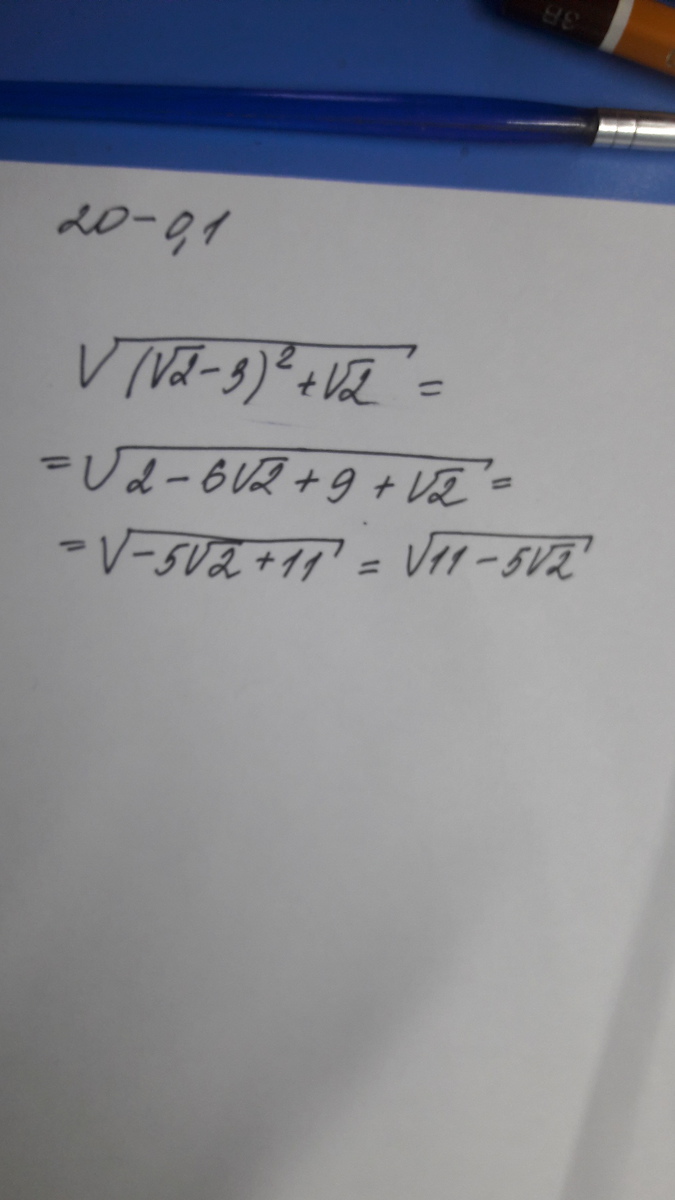 3B
20-0,1
√((√2-3)²+√2) =
=√(2-6√2+9+√2) =
=√(-5√2+11) = √(11-5√2)